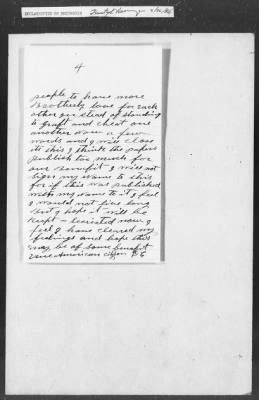 DECLASSIFIED BY
4
people to have more
Brotherly love for each
other in stead of standing
to graft and cheat one
another now a few
words and I will close
its this I think the papers
publish too much for
our benefit I will not
sign my name to this
for if this was published
with my name to it I feel
I would not live long
But I hope it will be
kept - secreted now I
feel I have cleared my
feelings and hope this
may be of some benefit
American